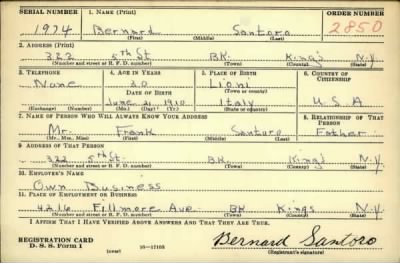 SERIAL NUMBER 1. NAME (Print) ORDER NUMBER
1974 Bernard Santoro 2850
(First) (Middle) (Last)
2. ADDRESS (Print)
322 5th St BK. Kings N.Y
(Number and street or R. F. D. number) (Town) (County) (State)
3. TELEPHONE 4. AGE IN YEARS 5. PLACE OF BIRTH 6. COUNTRY OF CITIZENSHIP
None 30 Lioni
DATE OF BIRTH (Town or county)
June 21, 1910 Italy U.S.A
(Exchange) (Number) (Mo.) (Day) (Yr.) (State or country)
7. NAME OF PERSON WHO WILL ALWAYS KNOW YOUR ADDRESS 8. RELATIONSHIP OF THAT PERSON
Mr. Frank Santoro Father
(Mr., Mrs., Miss) (First) (Middle) (Last)
9. ADDRESS OF THAT PERSON
322 5th St. BK Kings N.Y
(Number and street or R. F. D. number) (Town) (County) (State)
10. EMPLOYER'S NAME
Own Business
11. PLACE OF EMPLOYMENT OR BUSINESS
4216 Fillmore Ave BK Kings N.Y
(Number and street or R. F. D. number) (Town) (County) (State)
I AFFIRM THAT I HAVE VERIFIED ABOVE ANSWERS AND THAT THEY ARE TRUE.
REGISTRATION CARD
D. S. S. Form 1 (over) 16—17105 Bernard Santoro
(Registrant's signature)